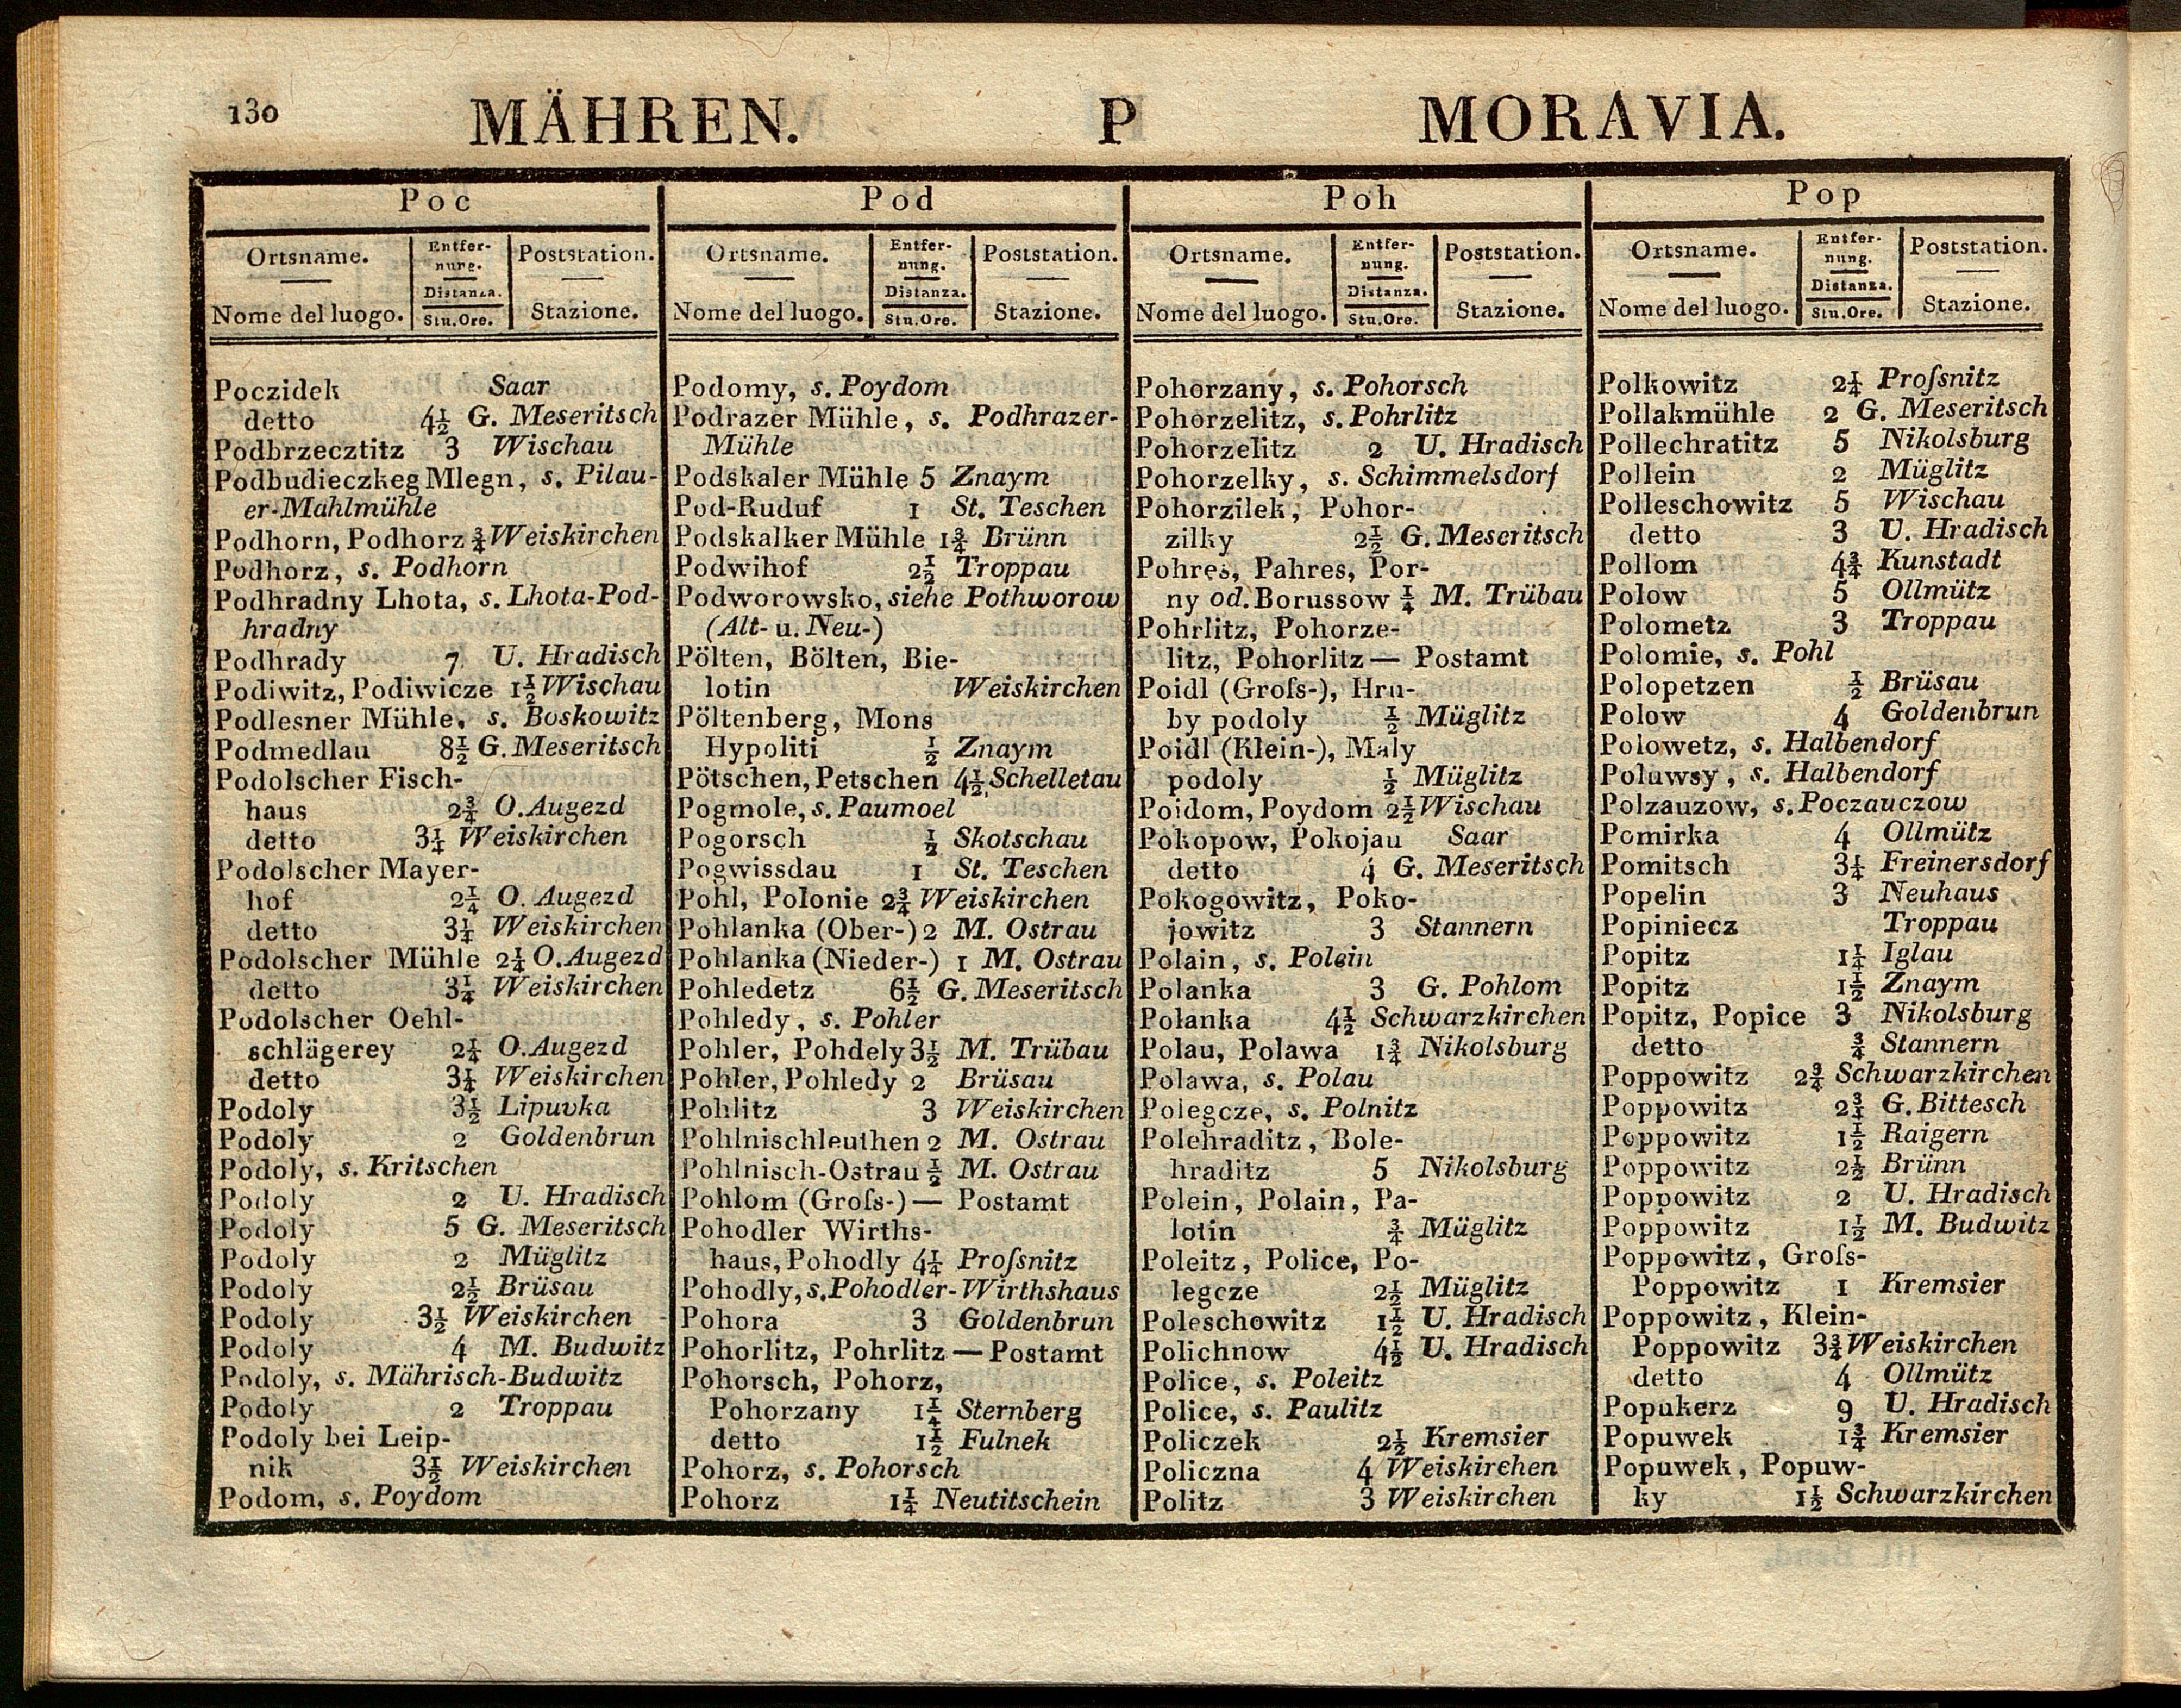 130 MÄHREN. P MORAVIA.
Poc
Ortsname. Entfer- Poststation.
nung.
Distanza.
Nome del luogo. Stu.Ore. Stazione.
Poczidek Saar
detto 4½ G. Meseritsch
Podbrzecztitz 3 Wischau
Podbudieczkeg Mlegn, s. Pilau-
er-Mahlmühle
Podhorn, Podhorz ¾ Weiskirchen
Podhorz, s. Podhorn
Podhradny Lhota, s. Lhota-Pod-
hradny
Podhrady 7 U. Hradisch
Podiwitz, Podiwicze 1½ Wischau
Podlesner Mühle, s. Boskowitz
Podmedlau 8½ G. Meseritsch
Podolscher Fisch-
haus 2¾ O. Augezd
detto 3¼ Weiskirchen
Podolscher Mayer-
hof 2¼ O. Augezd
detto 3¼ Weiskirchen
Podolscher Mühle 2¼ O. Augezd
detto 3¼ Weiskirchen
Podolscher Oehl-
schlägerey 2¼ O. Augezd
detto 3¼ Weiskirchen
Podoly 3½ Lipuvka
Podoly 2 Goldenbrun
Podoly, s. Kritschen
Podoly 2 U. Hradisch
Podoly 5 G. Meseritsch
Podoly 2 Müglitz
Podoly 2½ Brüsau
Podoly 3½ Weiskirchen
Podoly 4 M. Budwitz
Podoly, s. Mährisch-Budwitz
Podoly 2 Troppau
Podoly bei Leip-
nik 3½ Weiskirchen
Podom, s. Poydom
Pod
Ortsname. Entfer- Poststation.
nung.
Distanza.
Nome del luogo. Stu.Ore. Stazione.
Podomy, s. Poydom
Podrazer Mühle, s. Podhrazer-
Mühle
Podskaler Mühle 5 Znaym
Pod-Ruduf 1 St. Teschen
Podskalker Mühle 1¾ Brünn
Podwihof 2½ Troppau
Podworowsko, siehe Pothworow
(Alt- u. Neu-)
Pölten, Bölten, Bie-
lotin Weiskirchen
Pöltenberg, Mons
Hypoliti ½ Znaym
Pötschen, Petschen 4½ Schelletau
Pogmole, s. Paumoel
Pogorsch ½ Skotschau
Pogwissdau 1 St. Teschen
Pohl, Polonie 2¾ Weiskirchen
Pohlanka (Ober-) 2 M. Ostrau
Pohlanka (Nieder-) 1 M. Ostrau
Pohledetz 6½ G. Meseritsch
Pohledy, s. Pohler
Pohler, Pohdely 3½ M. Trübau
Pohler, Pohledy 2 Brüsau
Pohlitz 3 Weiskirchen
Pohlnischleuthen 2 M. Ostrau
Pohlnisch-Ostrau ½ M. Ostrau
Pohlom (Groſs-) — Postamt
Pohodler Wirths-
haus, Pohodly 4¼ Proſsnitz
Pohodly, s. Pohodler-Wirthshaus
Pohora 3 Goldenbrun
Pohorlitz, Pohrlitz — Postamt
Pohorsch, Pohorz,
Pohorzany 1¼ Sternberg
detto 1½ Fulnek
Pohorz, s. Pohorsch
Pohorz 1¼ Neutitschein
Poh
Ortsname. Entfer- Poststation.
nung.
Distanza.
Nome del luogo. Stu.Ore. Stazione.
Pohorzany, s. Pohorsch
Pohorzelitz, s. Pohrlitz
Pohorzelitz 2 U. Hradisch
Pohorzelky, s. Schimmelsdorf
Pohorzilek, Pohor-
zilky 2½ G. Meseritsch
Pohres, Pahres, Por-
ny od. Borussow ¼ M. Trübau
Pohrlitz, Pohorze-
litz, Pohorlitz — Postamt
Poidl (Groſs-), Hru-
by podoly ½ Müglitz
Poidl (Klein-), Maly
podoly ½ Müglitz
Poidom, Poydom 2½ Wischau
Pokopow, Pokojau Saar
detto 4 G. Meseritsch
Pokogowitz, Poko-
jowitz 3 Stannern
Polain, s. Polein
Polanka 3 G. Pohlom
Polanka 4½ Schwarzkirchen
Polau, Polawa 1¾ Nikolsburg
Polawa, s. Polau
Polegcze, s. Polnitz
Polehraditz, Bole-
hraditz 5 Nikolsburg
Polein, Polain, Pa-
lotin ¾ Müglitz
Poleitz, Police, Po-
legcze 2½ Müglitz
Poleschowitz 1½ U. Hradisch
Polichnow 4½ U. Hradisch
Police, s. Poleitz
Police, s. Paulitz
Policzek 2½ Kremsier
Policzna 4 Weiskirchen
Politz 3 Weiskirchen
Pop
Ortsname. Entfer- Poststation.
nung.
Distanza.
Nome del luogo. Stu.Ore. Stazione.
Polkowitz 2¼ Proſsnitz
Pollakmühle 2 G. Meseritsch
Pollechratitz 5 Nikolsburg
Pollein 2 Müglitz
Polleschowitz 5 Wischau
detto 3 U. Hradisch
Pollom 4¾ Kunstadt
Polow 5 Ollmütz
Polometz 3 Troppau
Polomie, s. Pohl
Polopetzen ½ Brüsau
Polow 4 Goldenbrun
Polowetz, s. Halbendorf
Poluwsy, s. Halbendorf
Polzauzow, s. Poczauczow
Pomirka 4 Ollmütz
Pomitsch 3¼ Freinersdorf
Popelin 3 Neuhaus
Popiniecz Troppau
Popitz 1¼ Iglau
Popitz 1½ Znaym
Popitz, Popice 3 Nikolsburg
detto ¾ Stannern
Poppowitz 2¾ Schwarzkirchen
Poppowitz 2¾ G. Bittesch
Poppowitz 1½ Raigern
Poppowitz 2½ Brünn
Poppowitz 2 U. Hradisch
Poppowitz 1½ M. Budwitz
Poppowitz, Groſs-
Poppowitz 1 Kremsier
Poppowitz, Klein-
Poppowitz 3¾ Weiskirchen
detto 4 Ollmütz
Popukerz 9 U. Hradisch
Popuwek 1¾ Kremsier
Popuwek, Popuw-
ky 1½ Schwarzkirchen